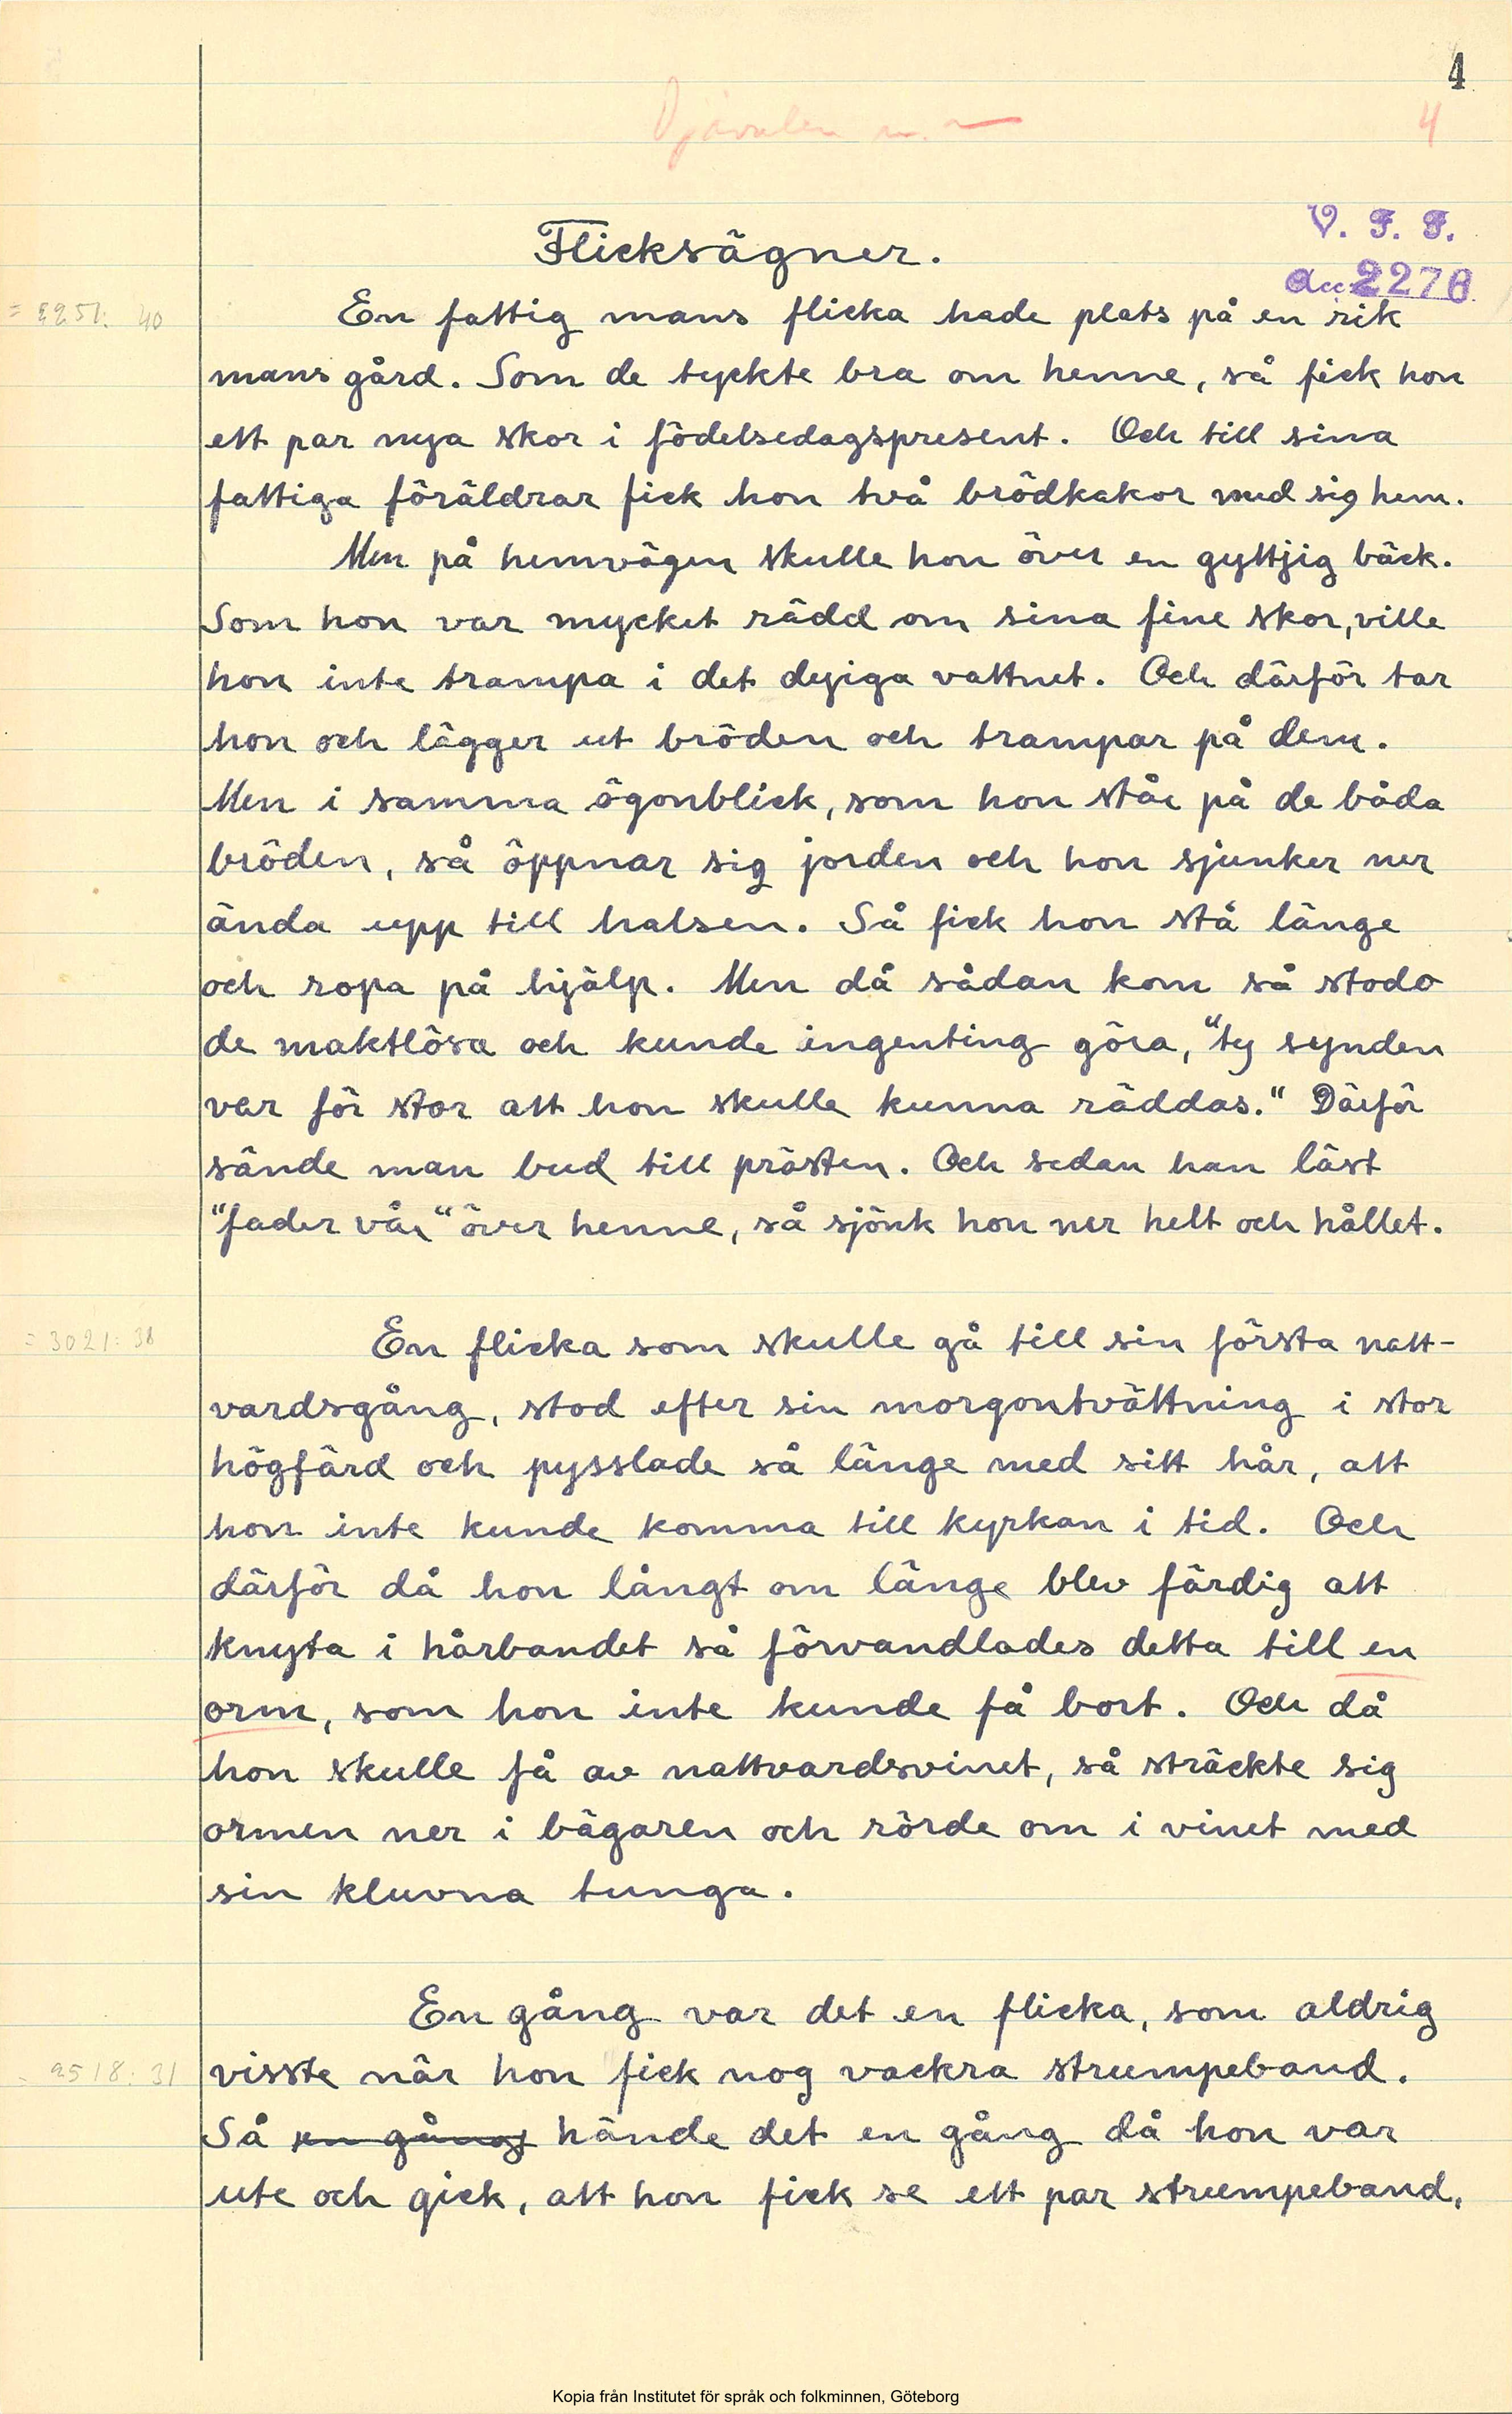 4
Djävulen m. m
4
V. F. F.
Acc 2276
Flicksägner.
= 2251: 40
En fattig mans flicka hade plats på en rik
mans gård. Som de tyckte bra om henne, så fick hon
ett par nya skor i födelsedagspresent. Och till sina
fattiga föräldrar fick hon två brödkakor med sig hem.
Men på hemvägen skulle hon över en gyttjig bäck.
Som hon var mycket rädd om sina fine skor, ville
hon inte trampa i det dyiga vattnet. Och därför tar
hon och lägger ut bröden och trampar på dem.
Men i samma ögonblick, som hon står på de båda
bröden, så öppnar sig jorden och hon sjunker ner
ända upp till halsen. Så fick hon stå länge
och ropa på hjälp. Men då sådan kom så stodo
de maktlösa och kunde ingenting göra, "ty synden
var för stor att hon skulle kunna räddas." Därför
sände man bud till prästen. Och sedan han läst
"fader vår" över henne, så sjönk hon ner helt och hållet.
= 3021: 38
En flicka som skulle gå till sin första natt-
vardsgång, stod efter sin morgontvättning i stor
högfärd och pysslade så länge med sitt hår, att
hon inte kunde komma till kyrkan i tid. Och
därför då hon långt om länge blev färdig att
knyta i hårbandet så förvandlades detta till en
orm, som hon inte kunde få bort. Och då
hon skulle få av nattvardsvinet, så sträckte sig
ormen ner i bägaren och rörde om i vinet med
sin kluvna tunga.
En gång var det en flicka, som aldrig
= 2518: 31
visste när hon fick nog vackra strumpeband.
Så en gång hände det en gång då hon var
ute och gick, att hon fick se ett par strumpeband,
Kopia från Institutet för språk och folkminnen, Göteborg